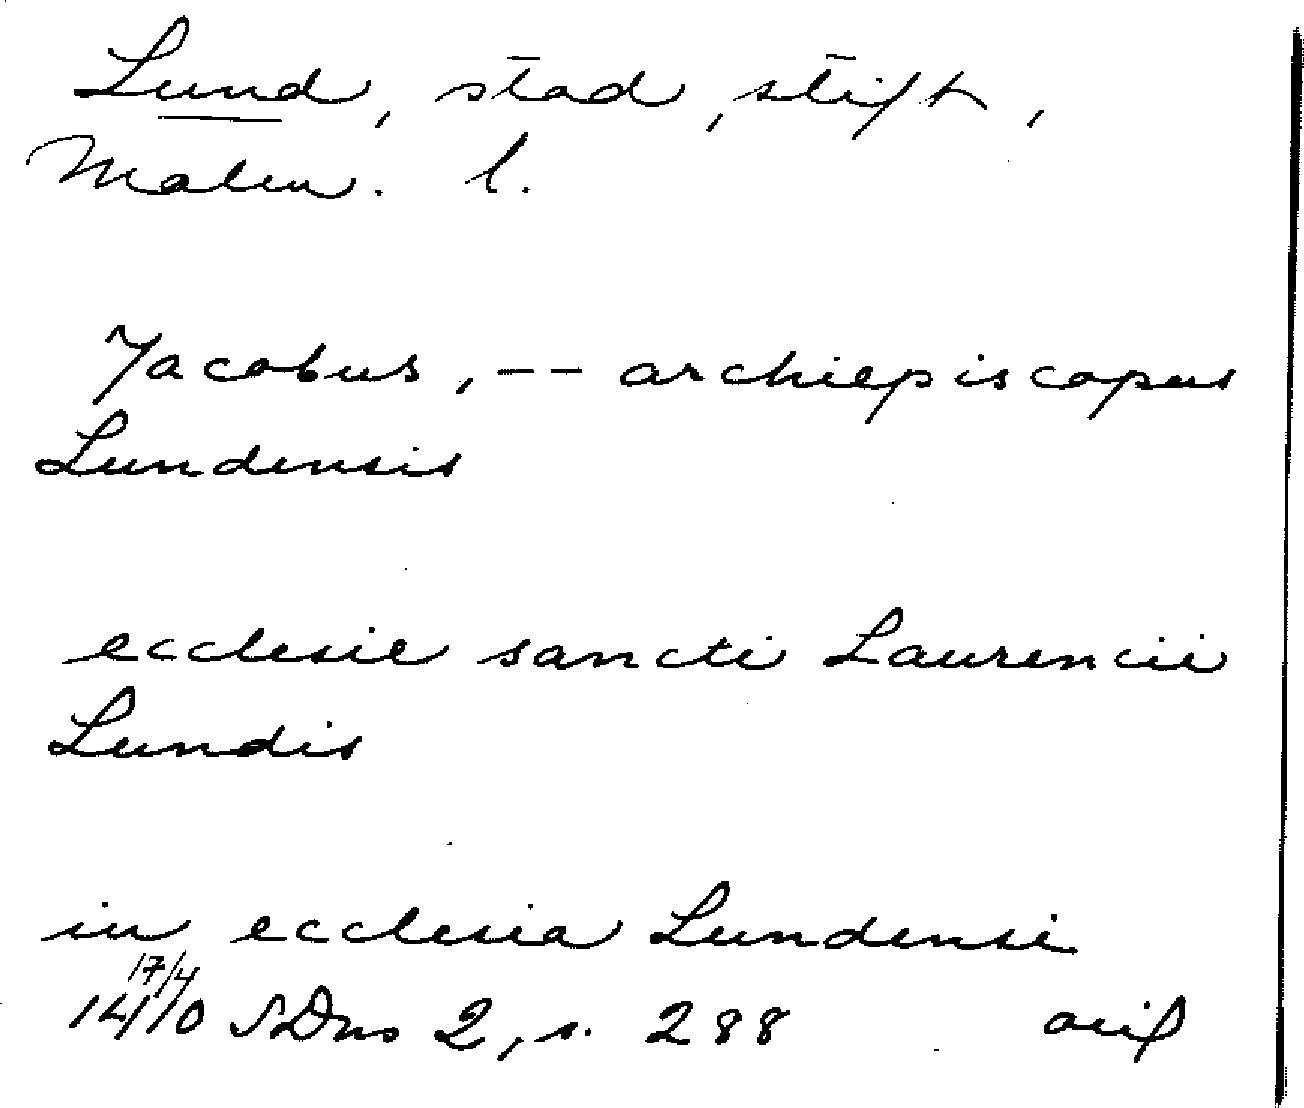 Lund, stad, stift,
Malm. l.
Jacobus, -- archiepiscopus
Lundensis
ecclesie sancti Laurencii
Lundis
in ecclesia Lundensi
17/4
1410 SDns 2, s. 288